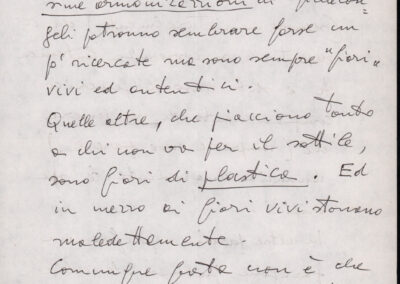 sue armonizzazioni di
geli potranno sembrare forse un
pò ricercate ma sono sempre "fiori"
vivi ed autentici.
Quelle altre, che piacciono tanto
a chi non va per il sottile,
sono fiori di plastica. Ed
in mezzo ai fiori vivi stonano
maledettamente.
Comunque non è che